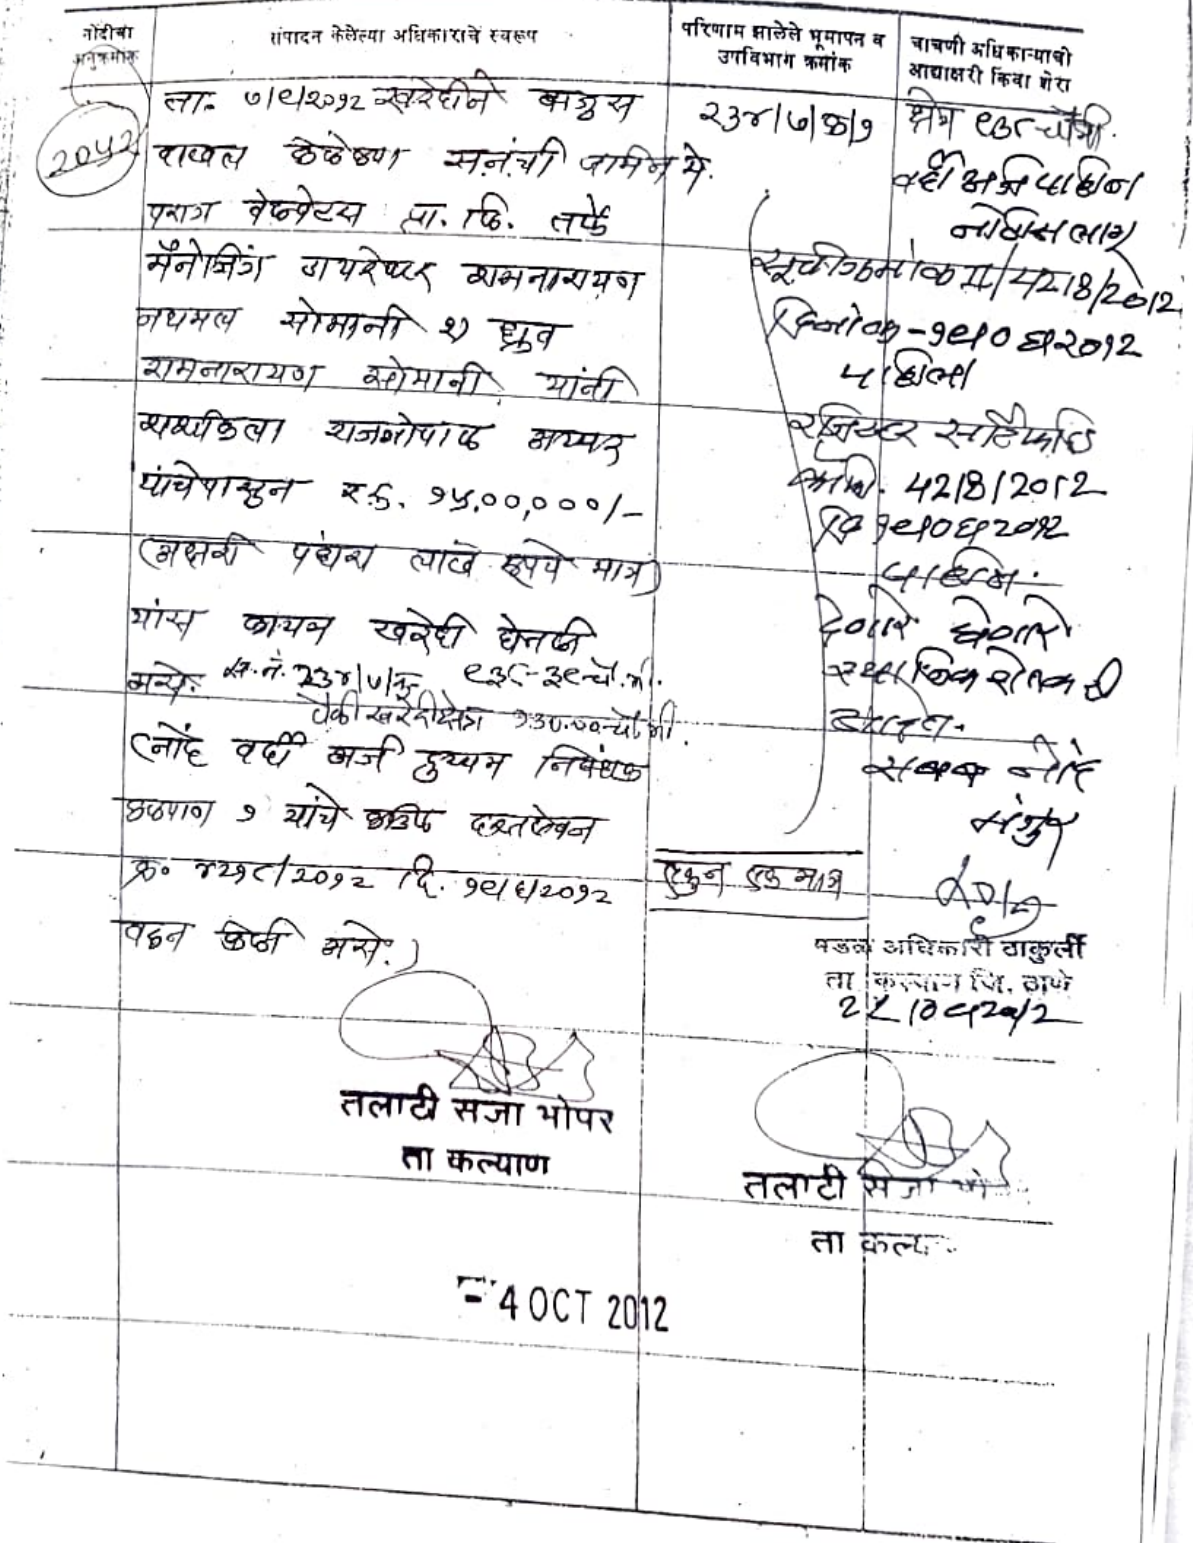 नोंदीचा
अनुक्रमांक
संपादन केलेल्या अधिकाराचे स्वरूप
परिणाम झालेले भूमापन व
उपविभाग क्रमांक
चाचणी अधिकाऱ्याची
आद्याक्षरी किंवा शेरा
2052
ता. ७/९/२०१२ खरेदीने
दाखल सनंची जमिन मे.
पराग प्रा. लि. तर्फे
मॅनेजिंग डायरेक्टर रामनारायण
नथमल सोमानी २) ध्रुव
रामनारायण सोमानी यांनी
शशीकला राजगोपाळ अय्यर
यांचेपासुन रु. १५,००,०००/-
(अक्षरी पंधरा लाख रुपये मात्र)
यांस कायम खरेदी घेतली
असे. स.नं. २३४/७/ ९३८-३९ चौ.मी.
पैकी खरेदी क्षेत्र चौ.मी.
(नोंद वर्दी अर्ज दुय्यम निबंधक
कल्याण १ यांचे कडील दस्तऐवज
क्र. ४२१८/२०१२ दि. १९/६/२०१२
वरुन केली असे.)
२३४/७/क/१
एकुन एक मात्र
क्षेत्र ९३८ चौ.मी.
वर्दी अर्ज पाहिला
सूची क्रमांक II/4218/2012
दिनांक-१९०६२०१२
पाहिला
रजिस्टर
4218/2012
दि १९०६२०१२
देणारे घेणारे
सबब नोंद
मंजुर
मंडळ अधिकारी ठाकुर्ली
ता कल्याण जि. ठाणे
तलाठी सजा भोपर
ता कल्याण
तलाठी सजा
ता
-4 OCT 2012